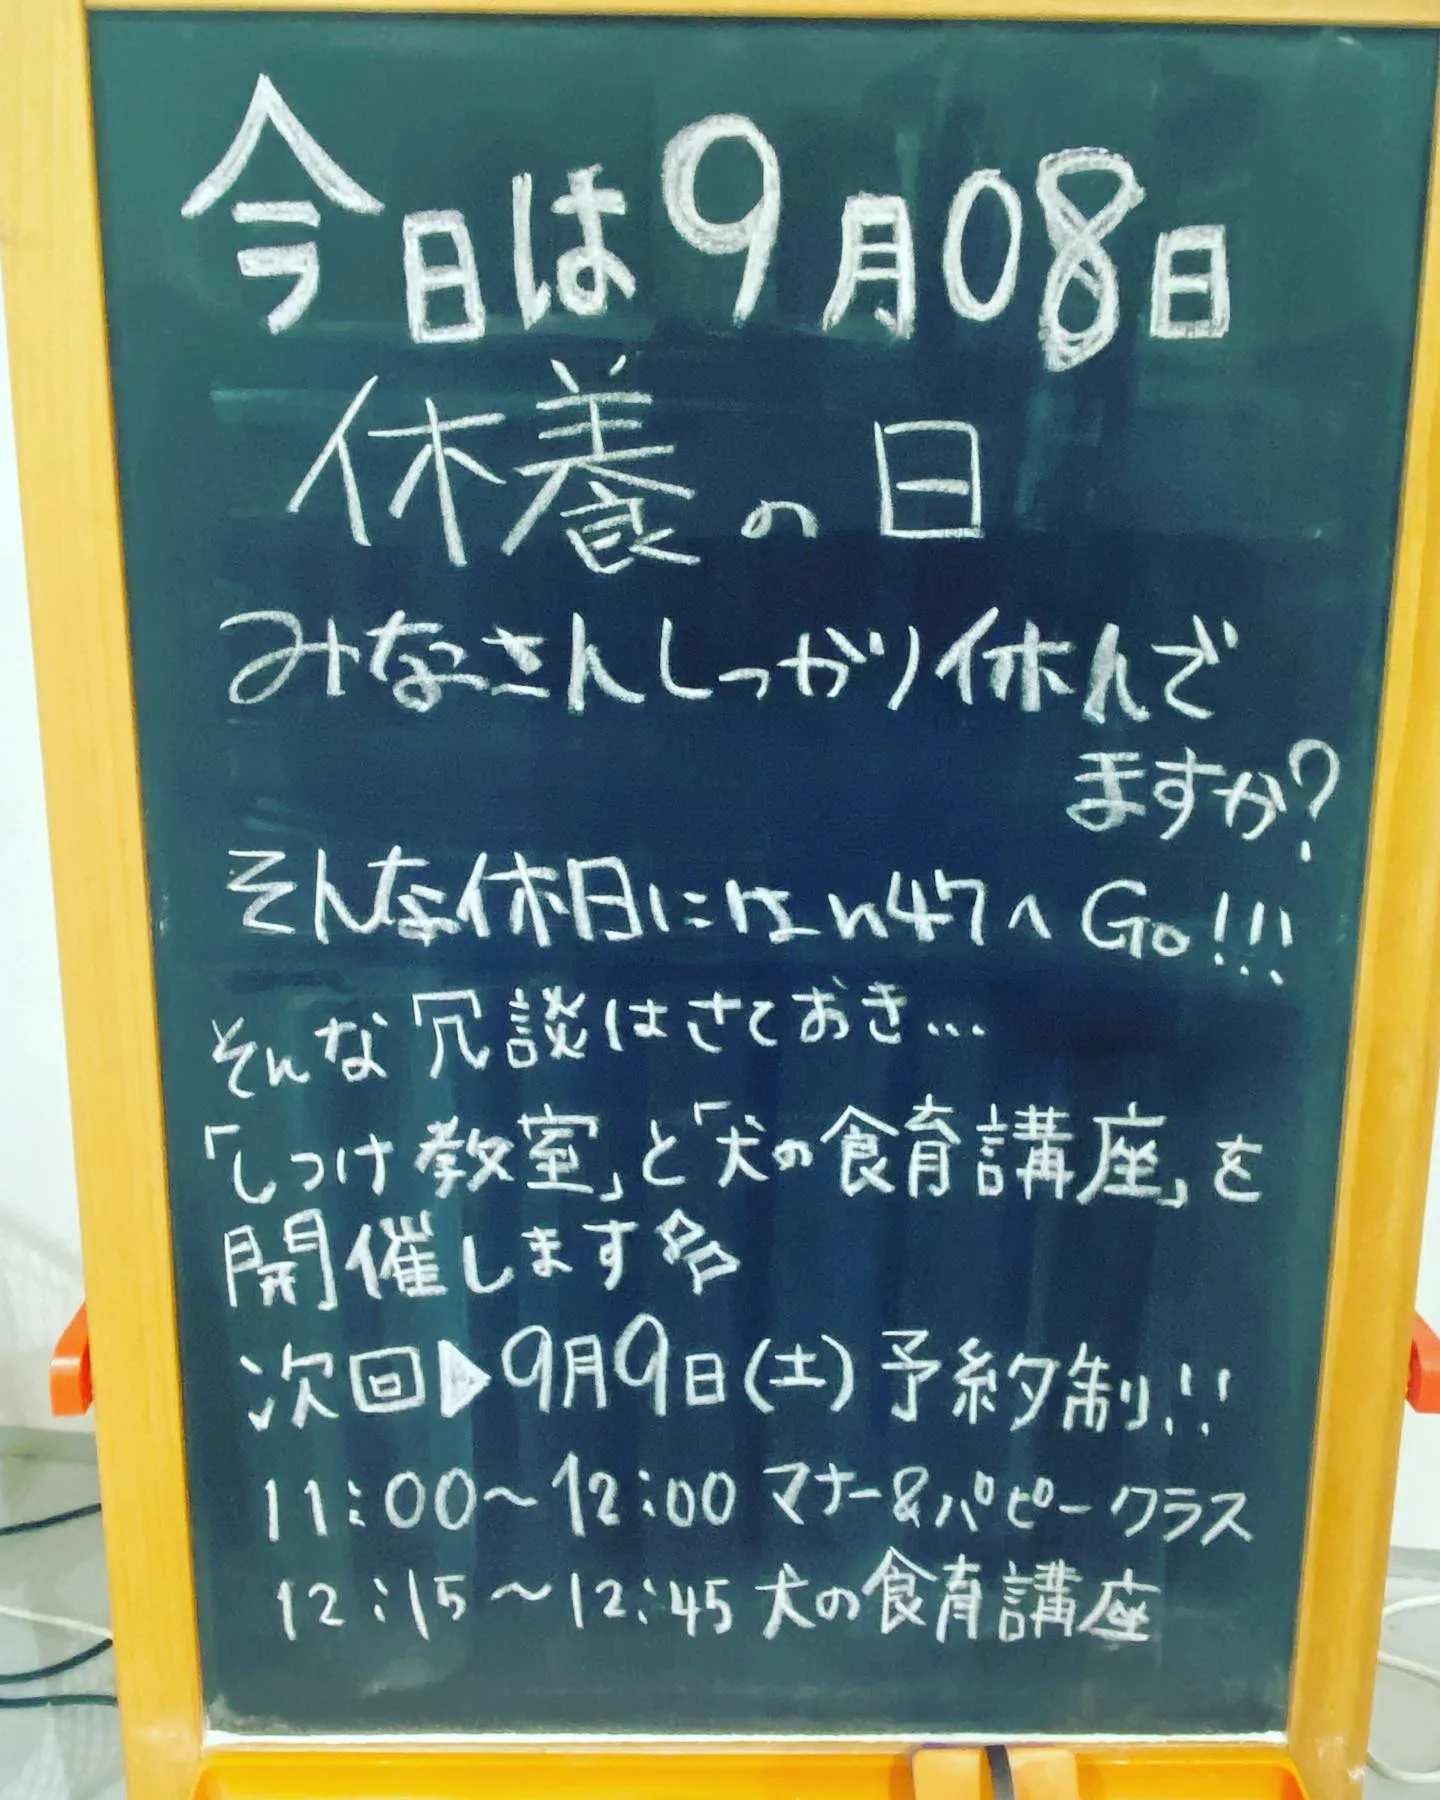 今日は9月08日
休養の日
みなさんしっかり休んで
ますか?
そんな休日にはn47へGo!!!
そんな冗談はさておき...
「しつけ教室」と「犬の食育講座」を
開催します
次回▶9月9日(土)予約制!!
11:00〜12:00 マナー&パピークラス
12:15〜12:45 犬の食育講座